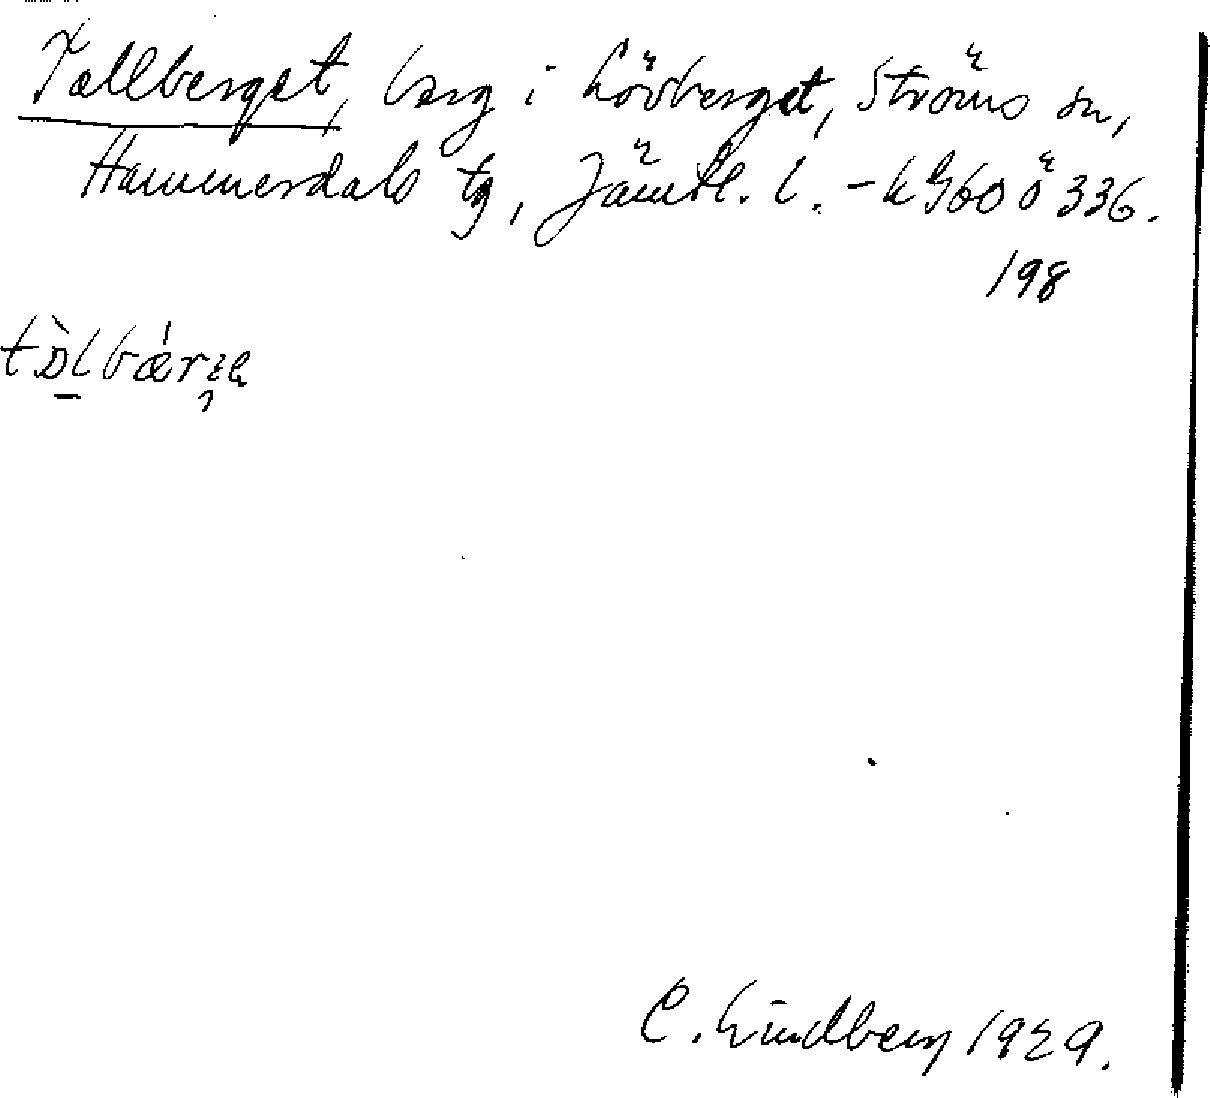 Tallberget, berg i Lövberget, Ströms sn,
Hammerdals tg, Jämtl. l. - k G60 Ö 336.
198
C. Lindberg 1929.